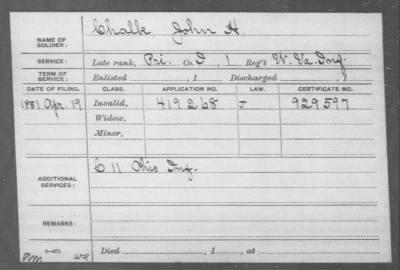 NAME OF SOLDIER: Chalk, John H.
SERVICE: Late rank, Pri. Co. I, 1 Reg't W. Va. Inf.
TERM OF SERVICE: Enlisted , 1 Discharged , 1
DATE OF FILING. CLASS. APPLICATION NO. LAW. CERTIFICATE NO.
1881 Apr. 19 Invalid, 419268 J 929597
Widow,
Minor,
ADDITIONAL SERVICES: C 11 Ohio Inf.
REMARKS:
Died , 1 , at